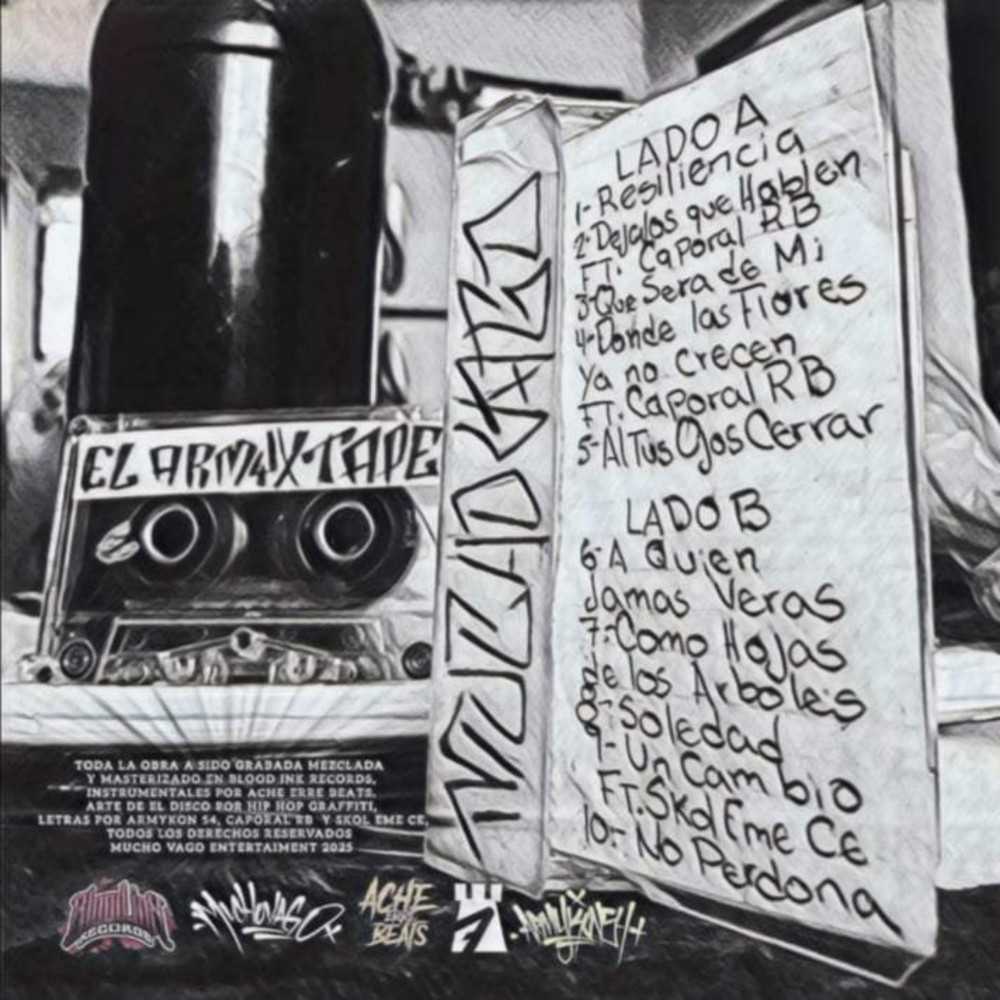 LADO A
1- Resiliencia
2- Dejalos que Hablen
FT. Caporal RB
3- Que Sera de Mi
4- Donde las Flores
Ya no crecen
FT. Caporal RB
5- Al Tus Ojos Cerrar
LADO B
6- A Quien
Jamas Veras
7- Como Hojas
de los Arboles
8- Soledad
9- Un Cambio
FT. Skol Eme Ce
10.- No Perdona
EL ARM4IX-TAPE
TODA LA OBRA A SIDO GRABADA MEZCLADA
Y MASTERIZADO EN BLOOD INK RECORDS,
INSTRUMENTALES POR ACHE ERRE BEATS.
ARTE DE EL DISCO POR HIP HOP GRAFFITI,
LETRAS POR ARMYKON 54, CAPORAL RB Y SKOL EME CE,
TODOS LOS DERECHOS RESERVADOS
MUCHO VAGO ENTERTAIMENT 2025
RECORDS
MUCHOVAGO
ACHE
ERRE
BEATS